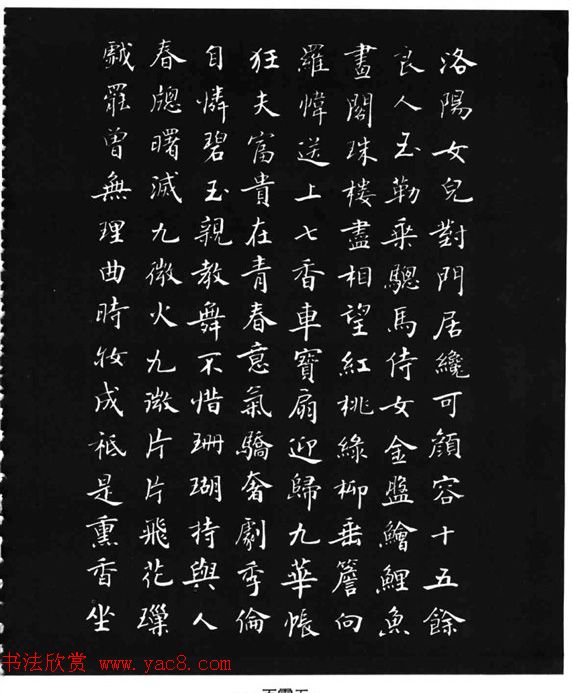 洛陽女兒對門居纔可顏容十五餘
良人玉勒乘驄馬侍女金盤鱠鯉魚
畫閣珠樓盡相望紅桃綠柳垂簷向
羅幃送上七香車寶扇迎歸九華帳
狂夫富貴在青春意氣驕奢劇季倫
自憐碧玉親教舞不惜珊瑚持與人
春牕曙滅九微火九微片片飛花璅
戲罷曾無理曲時妝成祗是熏香坐
书法欣赏 www.yac8.com